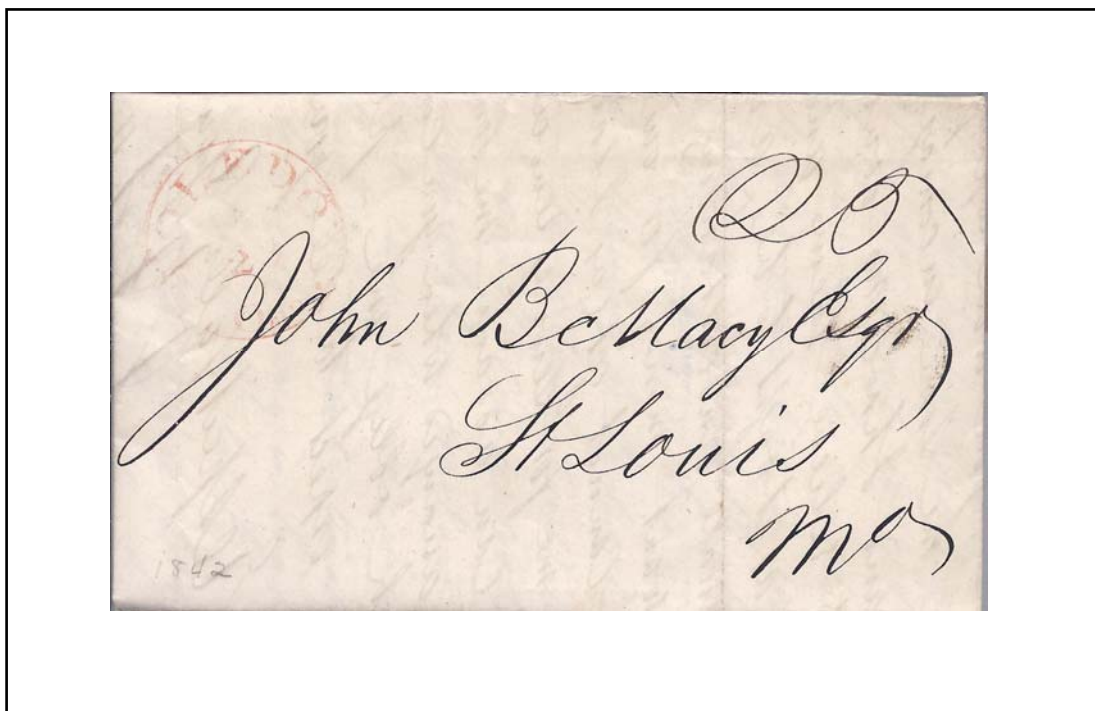 25
John B Macy Esqr
St Louis
Mo
1842